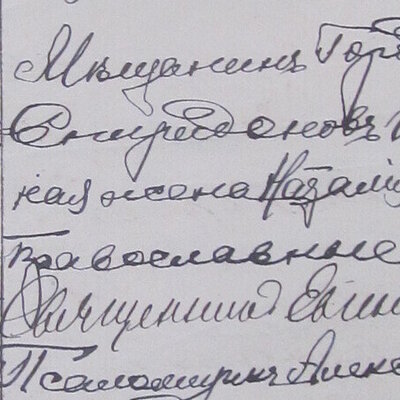 Мѣщанинъ Гор
Спиридоновъ
ная жена Наталі
Православные
Священникъ Евген
Псаломщикъ Алекс